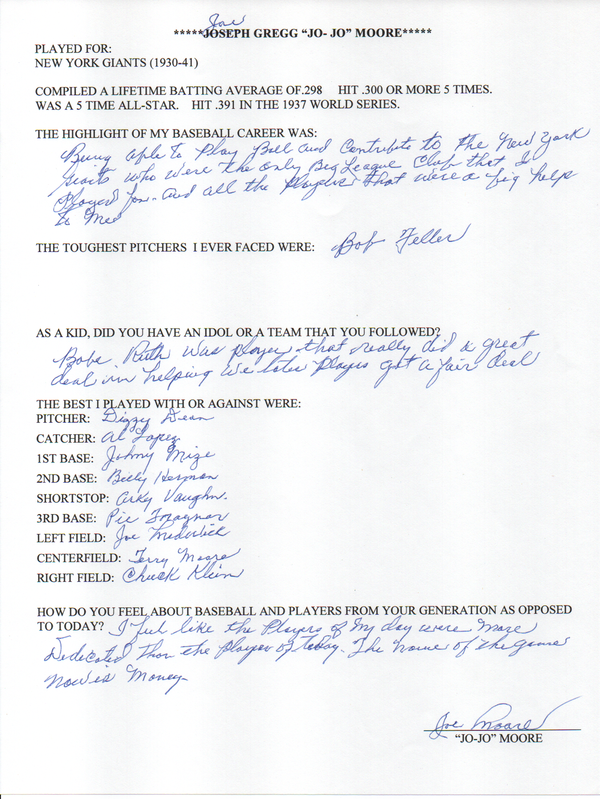 Joe
*****JOSEPH GREGG “JO- JO” MOORE*****
PLAYED FOR:
NEW YORK GIANTS (1930-41)
COMPILED A LIFETIME BATTING AVERAGE OF.298 HIT .300 OR MORE 5 TIMES.
WAS A 5 TIME ALL-STAR. HIT .391 IN THE 1937 WORLD SERIES.
THE HIGHLIGHT OF MY BASEBALL CAREER WAS:
Being able to Play Ball and Contribute to the New York
Giants who were the only Big League Club that I
Played for. And all the Players that were a big help
to Me
THE TOUGHEST PITCHERS I EVER FACED WERE: Bob Feller
AS A KID, DID YOU HAVE AN IDOL OR A TEAM THAT YOU FOLLOWED?
Babe Ruth was player that really did a great
deal in helping we later Players get a fair deal
THE BEST I PLAYED WITH OR AGAINST WERE:
PITCHER: Dizzy Dean
CATCHER: Al Lopez
1ST BASE: Johny Mize
2ND BASE: Billy Herman
SHORTSTOP: Arky Vaughn.
3RD BASE: Pie Traynor
LEFT FIELD: Joe Medwick
CENTERFIELD: Terry Moore
RIGHT FIELD: Chuck Klein
HOW DO YOU FEEL ABOUT BASEBALL AND PLAYERS FROM YOUR GENERATION AS OPPOSED
TO TODAY? I feel like the Players of My day were More
Dedicated than the Player of today. The name of the game
now is Money.
Joe Moore
“JO-JO” MOORE